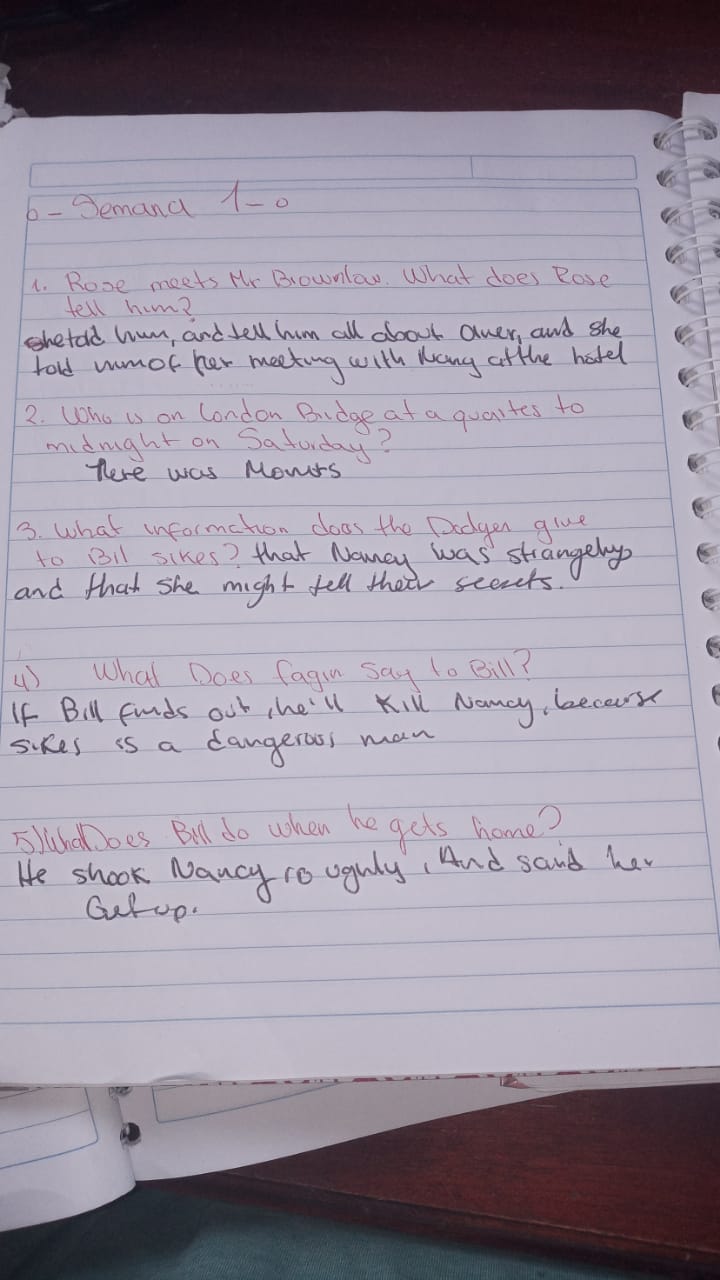 6 - Semana 1-0
1. Rose meets Mr Brownlow. What does Rose
tell him?
she told him, and tell him all about Oliver, and she
told him of her meeting with Nancy at the hotel
2. Who is on London Bridge at a quarter to
midnight on Saturday?
There was
3. What information does the Dodger give
to Bil sikes? that Nancy was strangely
and that she might tell their secrets.
4) What Does fagin Say to Bill?
If Bill finds out, he'll Kill Nancy, because
sikes is a dangerous man
5) What Does Bill do when he gets home?
He shook Nancy roughly, And said her
Get up.